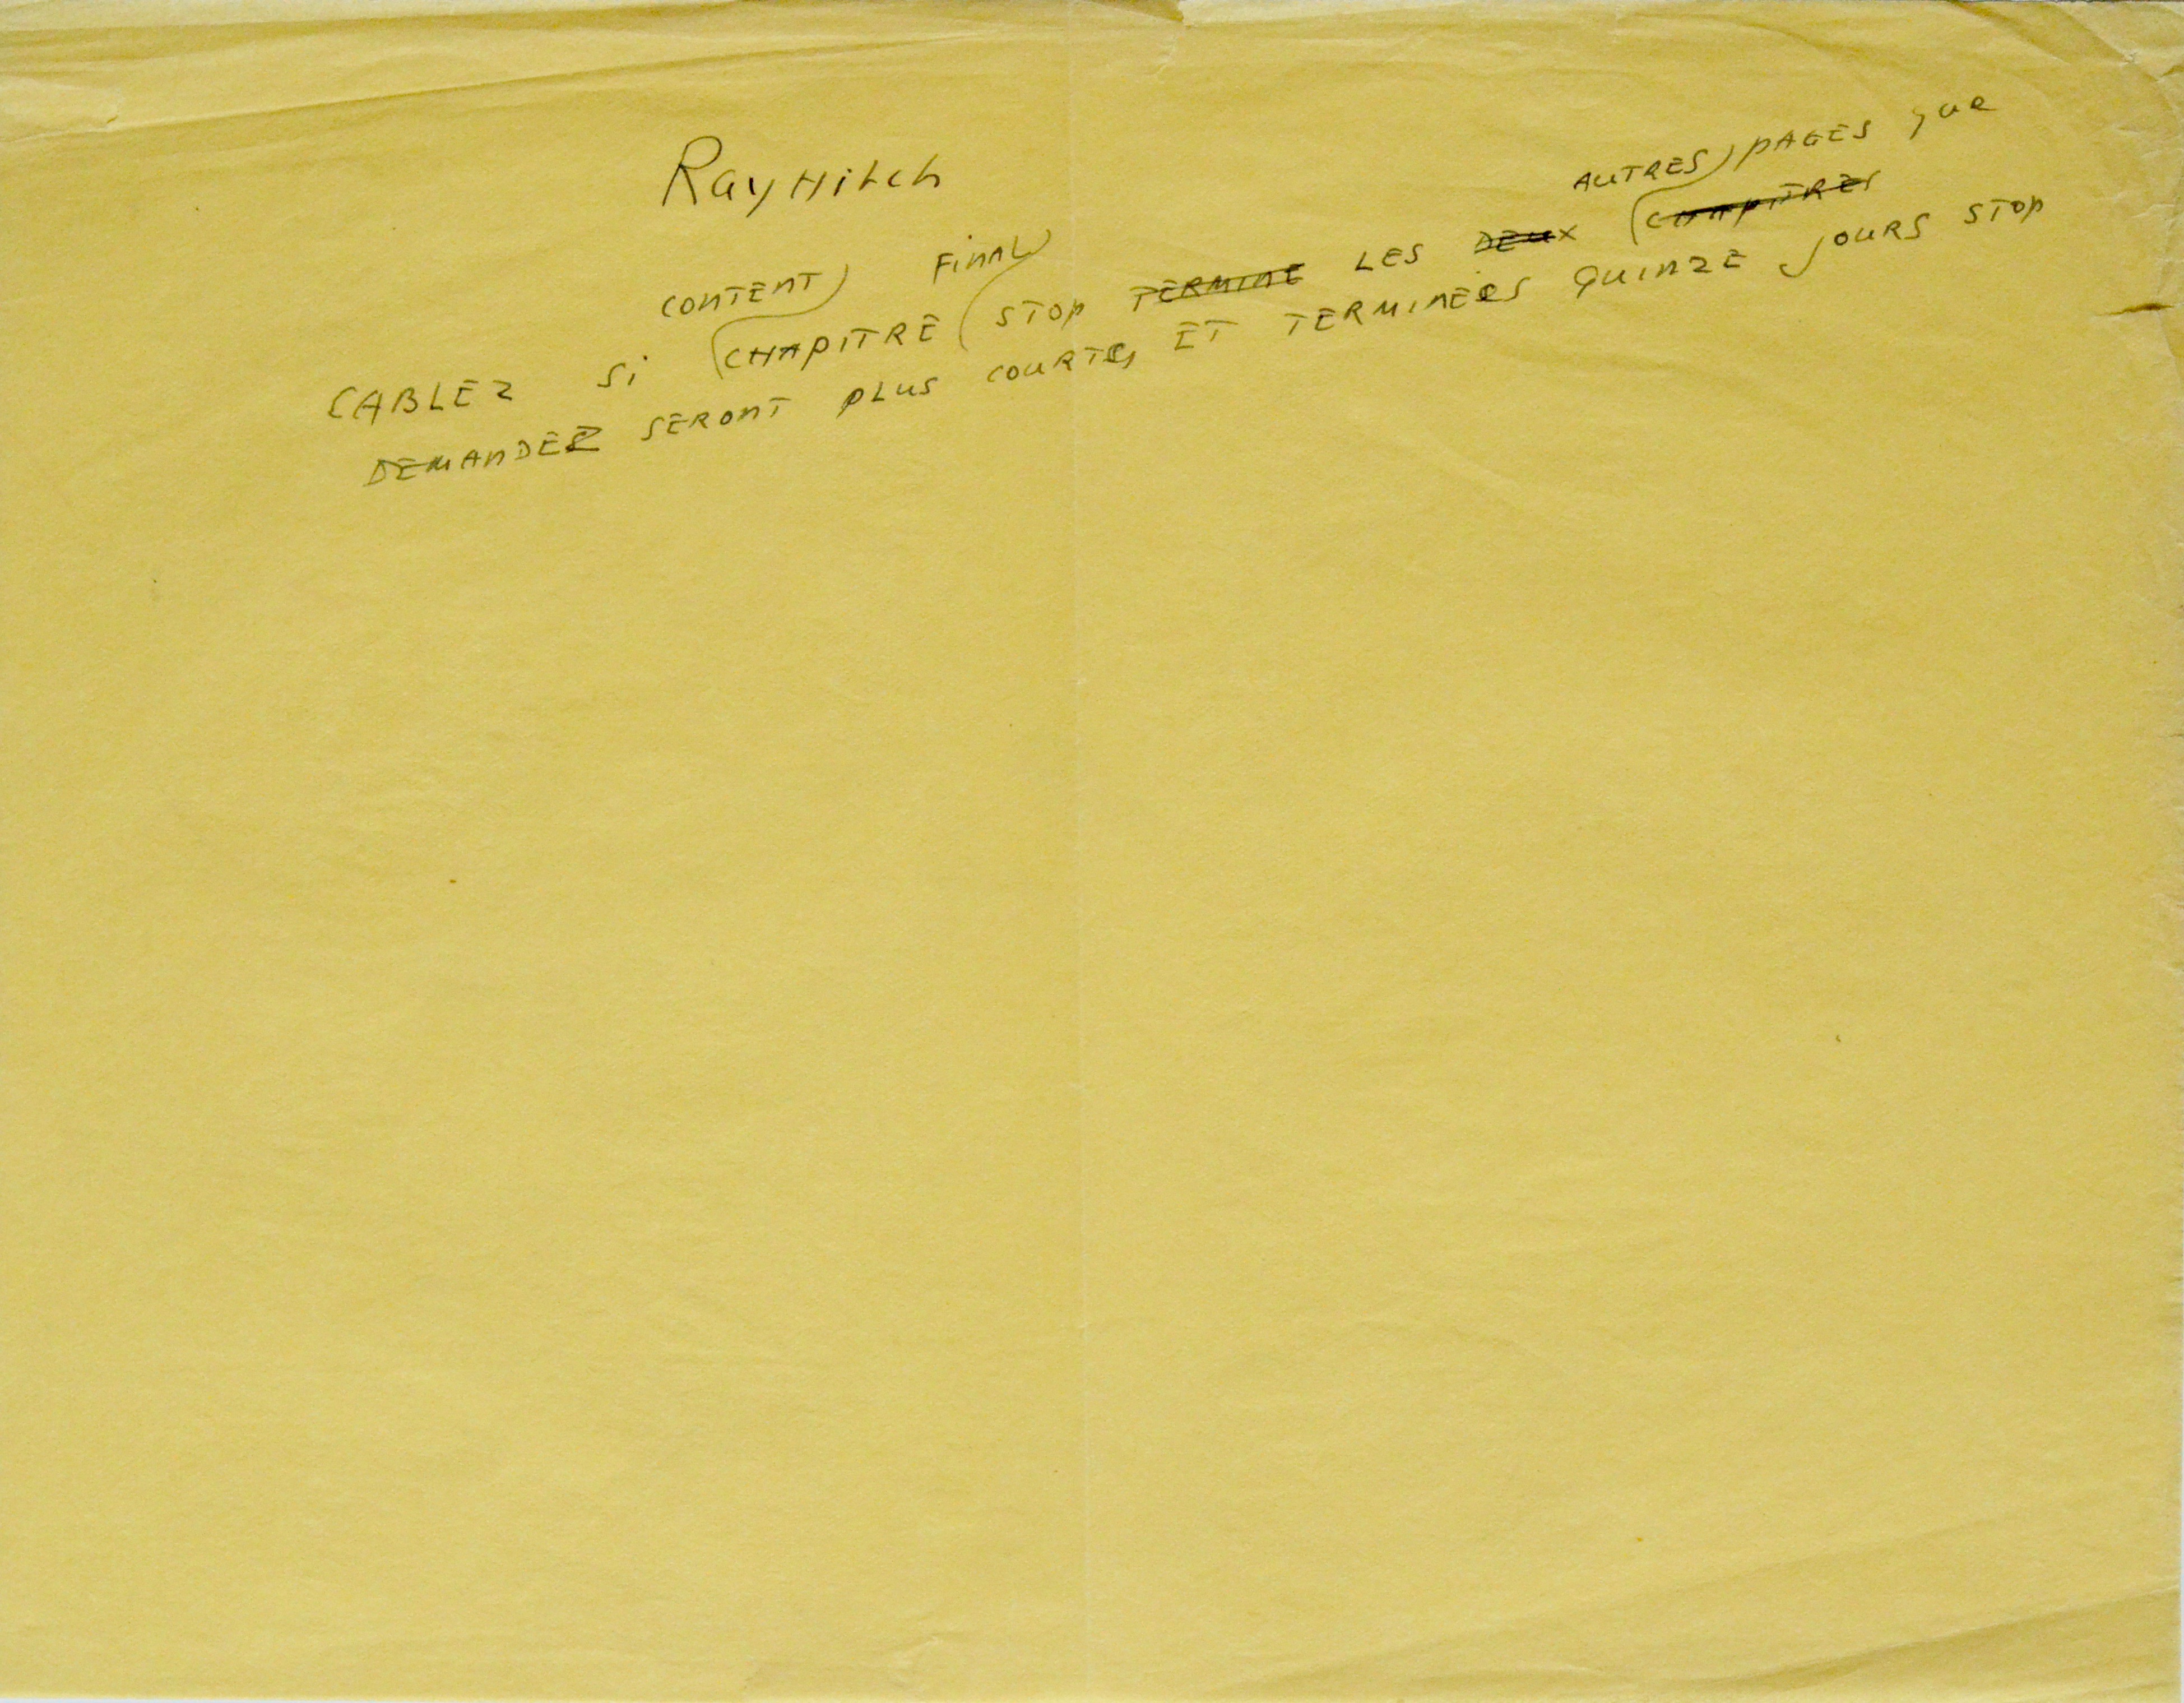 RayHitch
CABLEZ SI CONTENT CHAPITRE FINAL STOP TERMINE LES DEUX AUTRES CHAPITRES PAGES que
DEMANDEZ SERONT PLUS COURTES ET TERMINÉES QUINZE JOURS STOP